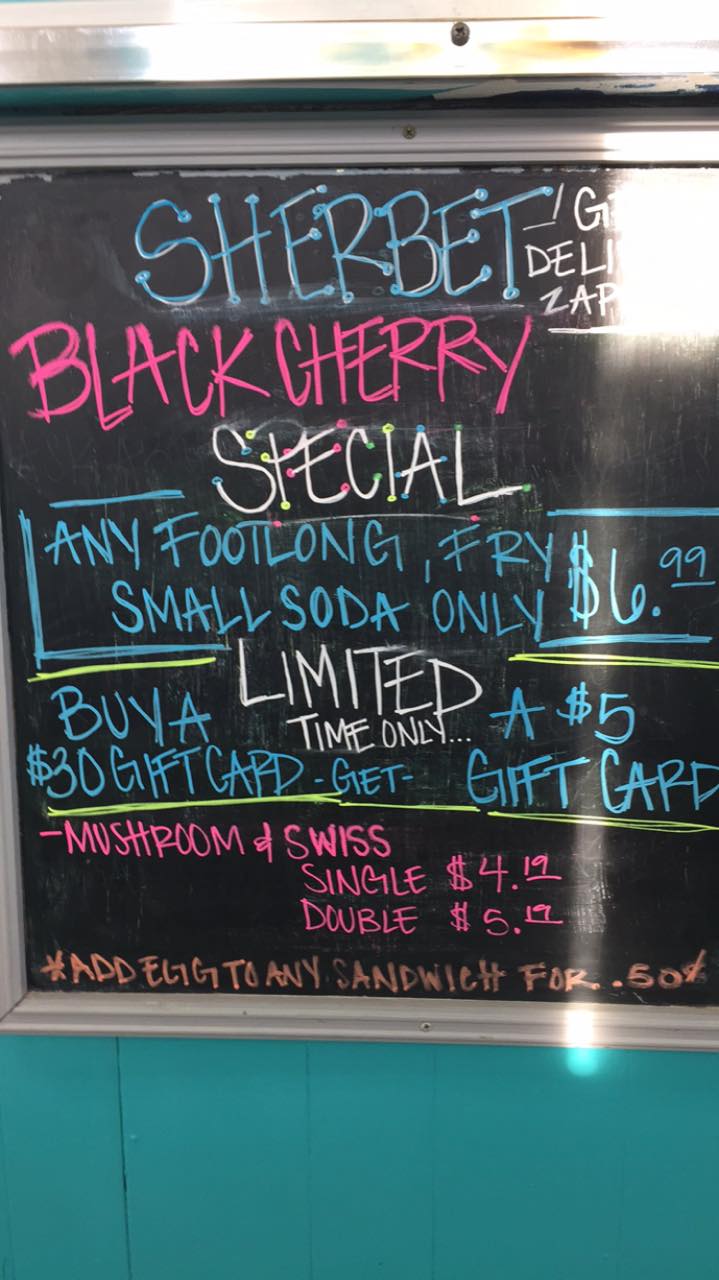 SHERBET
BLACK CHERRY
SPECIAL
ANY FOOTLONG, FRY $6.99
SMALL SODA ONLY
LIMITED
TIME ONLY...
BUY A
$30 GIFT CARD -GET-
A $5
GIFT CARD
-MUSHROOM & SWISS
SINGLE $4.19
DOUBLE $5.19
*ADD EGG TO ANY SANDWICH FOR .50¢